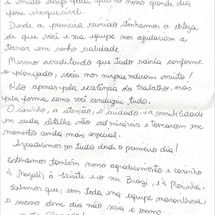 é muito mais feliz que o nosso grande dia
foi inesquecível.
Desde a primeira reunião tínhamos a certeza
de que você e sua equipe nos ajudariam a
tornar esse sonho realidade.
Mesmo acreditando que tudo sairia conforme
o planejado, vocês nos surpreenderam muito!
Não apenas pela excelência do trabalho, mas
pela forma como você conduziu tudo.
O carinho, a atenção, o cuidado e a simplicidade
em cada detalhe são admiráveis e tornaram esse
momento ainda mais especial.
Agradecemos por tudo desde o primeiro dia!
Estendemos também nosso agradecimento e carinho
à equipe
Sabemos que, sem toda essa equipe maravilhosa
o sucesso desse dia não seria o mesmo